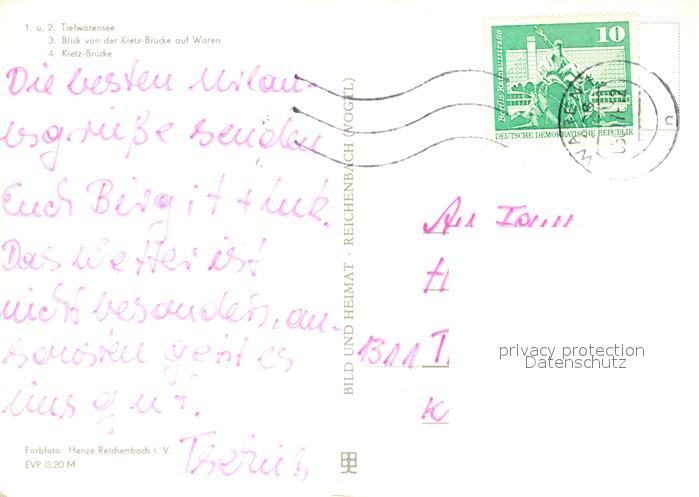 1. u. 2. Tiefwarensee
3. Blick von der Kietz-Brücke auf Waren
4. Kietz-Brücke
Die besten Urlau-
bsgrüße senden
Euch Birgit +
Das Wetter ist
nicht besonders, an-
sonsten geht es
uns gut.
Tschüß
Farbfoto: Henze Reichenbach i. V.
EVP 0,20 M
BILD UND HEIMAT · REICHENBACH (VOGTL)
10
Berlin, Rathausstraße
DEUTSCHE DEMOKRATISCHE REPUBLIK
WAREN
An
1311
privacy protection
Datenschutz